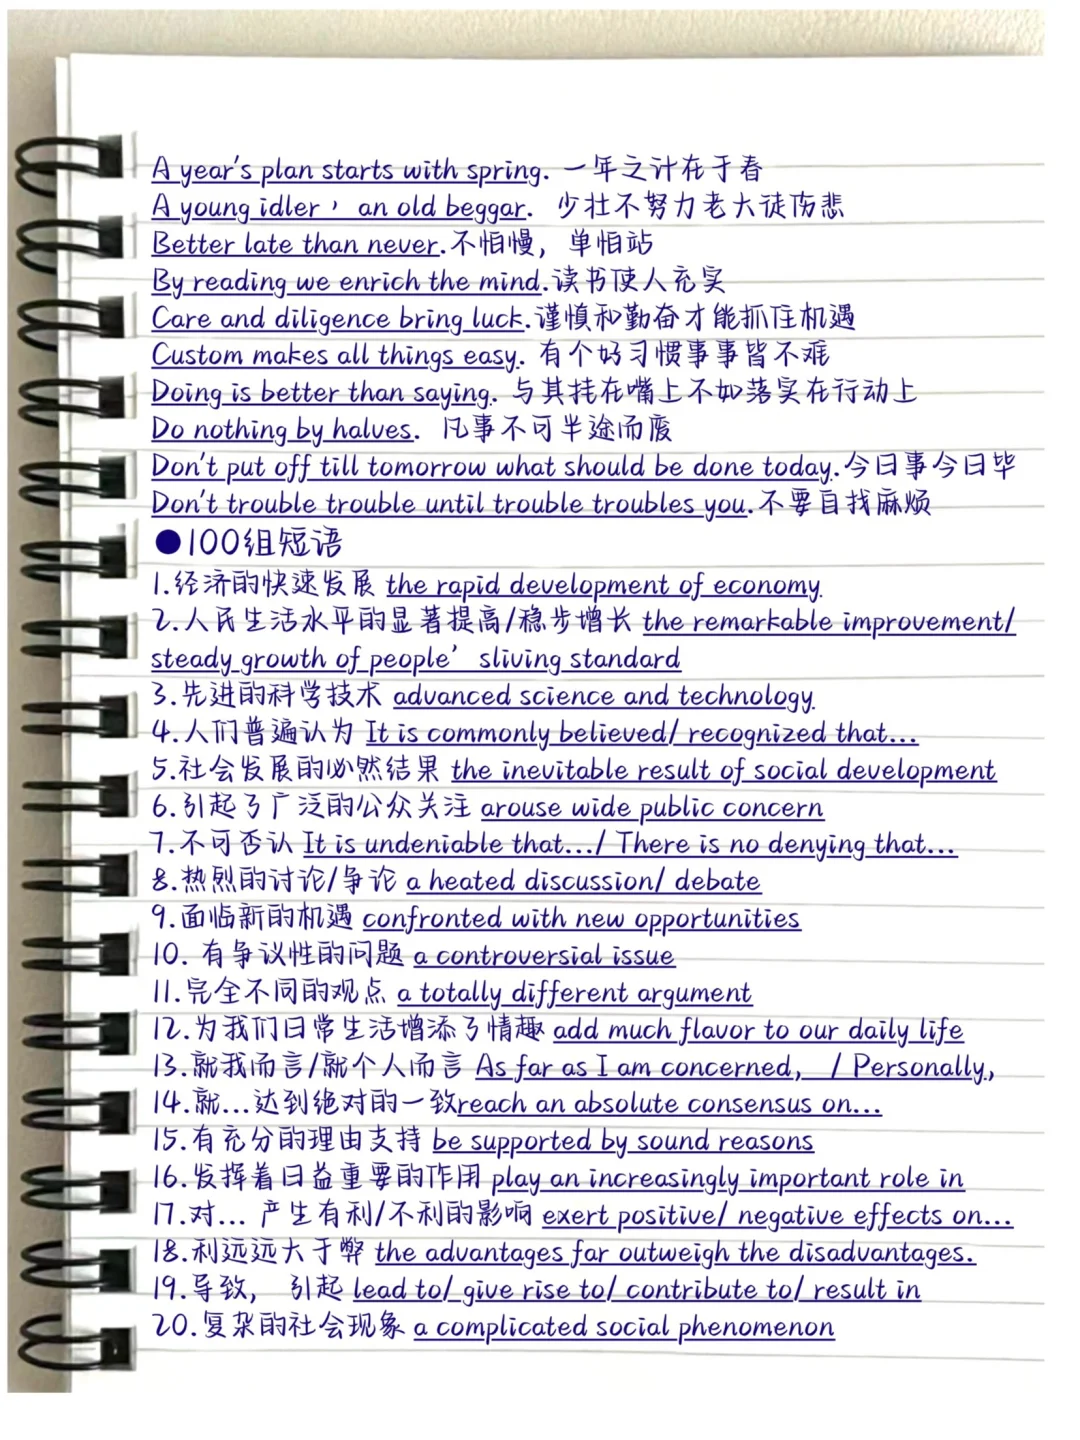 A year's plan starts with spring. 一年之计在于春
A young idler，an old beggar. 少壮不努力老大徒伤悲
Better late than never.不怕慢，单怕站
By reading we enrich the mind.读书使人充实
Care and diligence bring luck.谨慎和勤奋才能抓住机遇
Custom makes all things easy. 有个好习惯事事皆不难
Doing is better than saying. 与其挂在嘴上不如落实在行动上
Do nothing by halves. 凡事不可半途而废
Don't put off till tomorrow what should be done today.今日事今日毕
Don't trouble trouble until trouble troubles you.不要自找麻烦
●100组短语
1.经济的快速发展 the rapid development of economy
2.人民生活水平的显著提高/稳步增长 the remarkable improvement/
steady growth of people’ sliving standard
3.先进的科学技术 advanced science and technology
4.人们普遍认为 It is commonly believed/ recognized that...
5.社会发展的必然结果 the inevitable result of social development
6.引起了广泛的公众关注 arouse wide public concern
7.不可否认 It is undeniable that.../ There is no denying that...
8.热烈的讨论/争论 a heated discussion/ debate
9.面临新的机遇 confronted with new opportunities
10. 有争议性的问题 a controversial issue
11.完全不同的观点 a totally different argument
12.为我们日常生活增添了情趣 add much flavor to our daily life
13.就我而言/就个人而言 As far as I am concerned， / Personally,
14.就...达到绝对的一致reach an absolute consensus on...
15.有充分的理由支持 be supported by sound reasons
16.发挥着日益重要的作用 play an increasingly important role in
17.对... 产生有利/不利的影响 exert positive/ negative effects on...
18.利远远大于弊 the advantages far outweigh the disadvantages.
19.导致， 引起 lead to/ give rise to/ contribute to/ result in
20.复杂的社会现象 a complicated social phenomenon